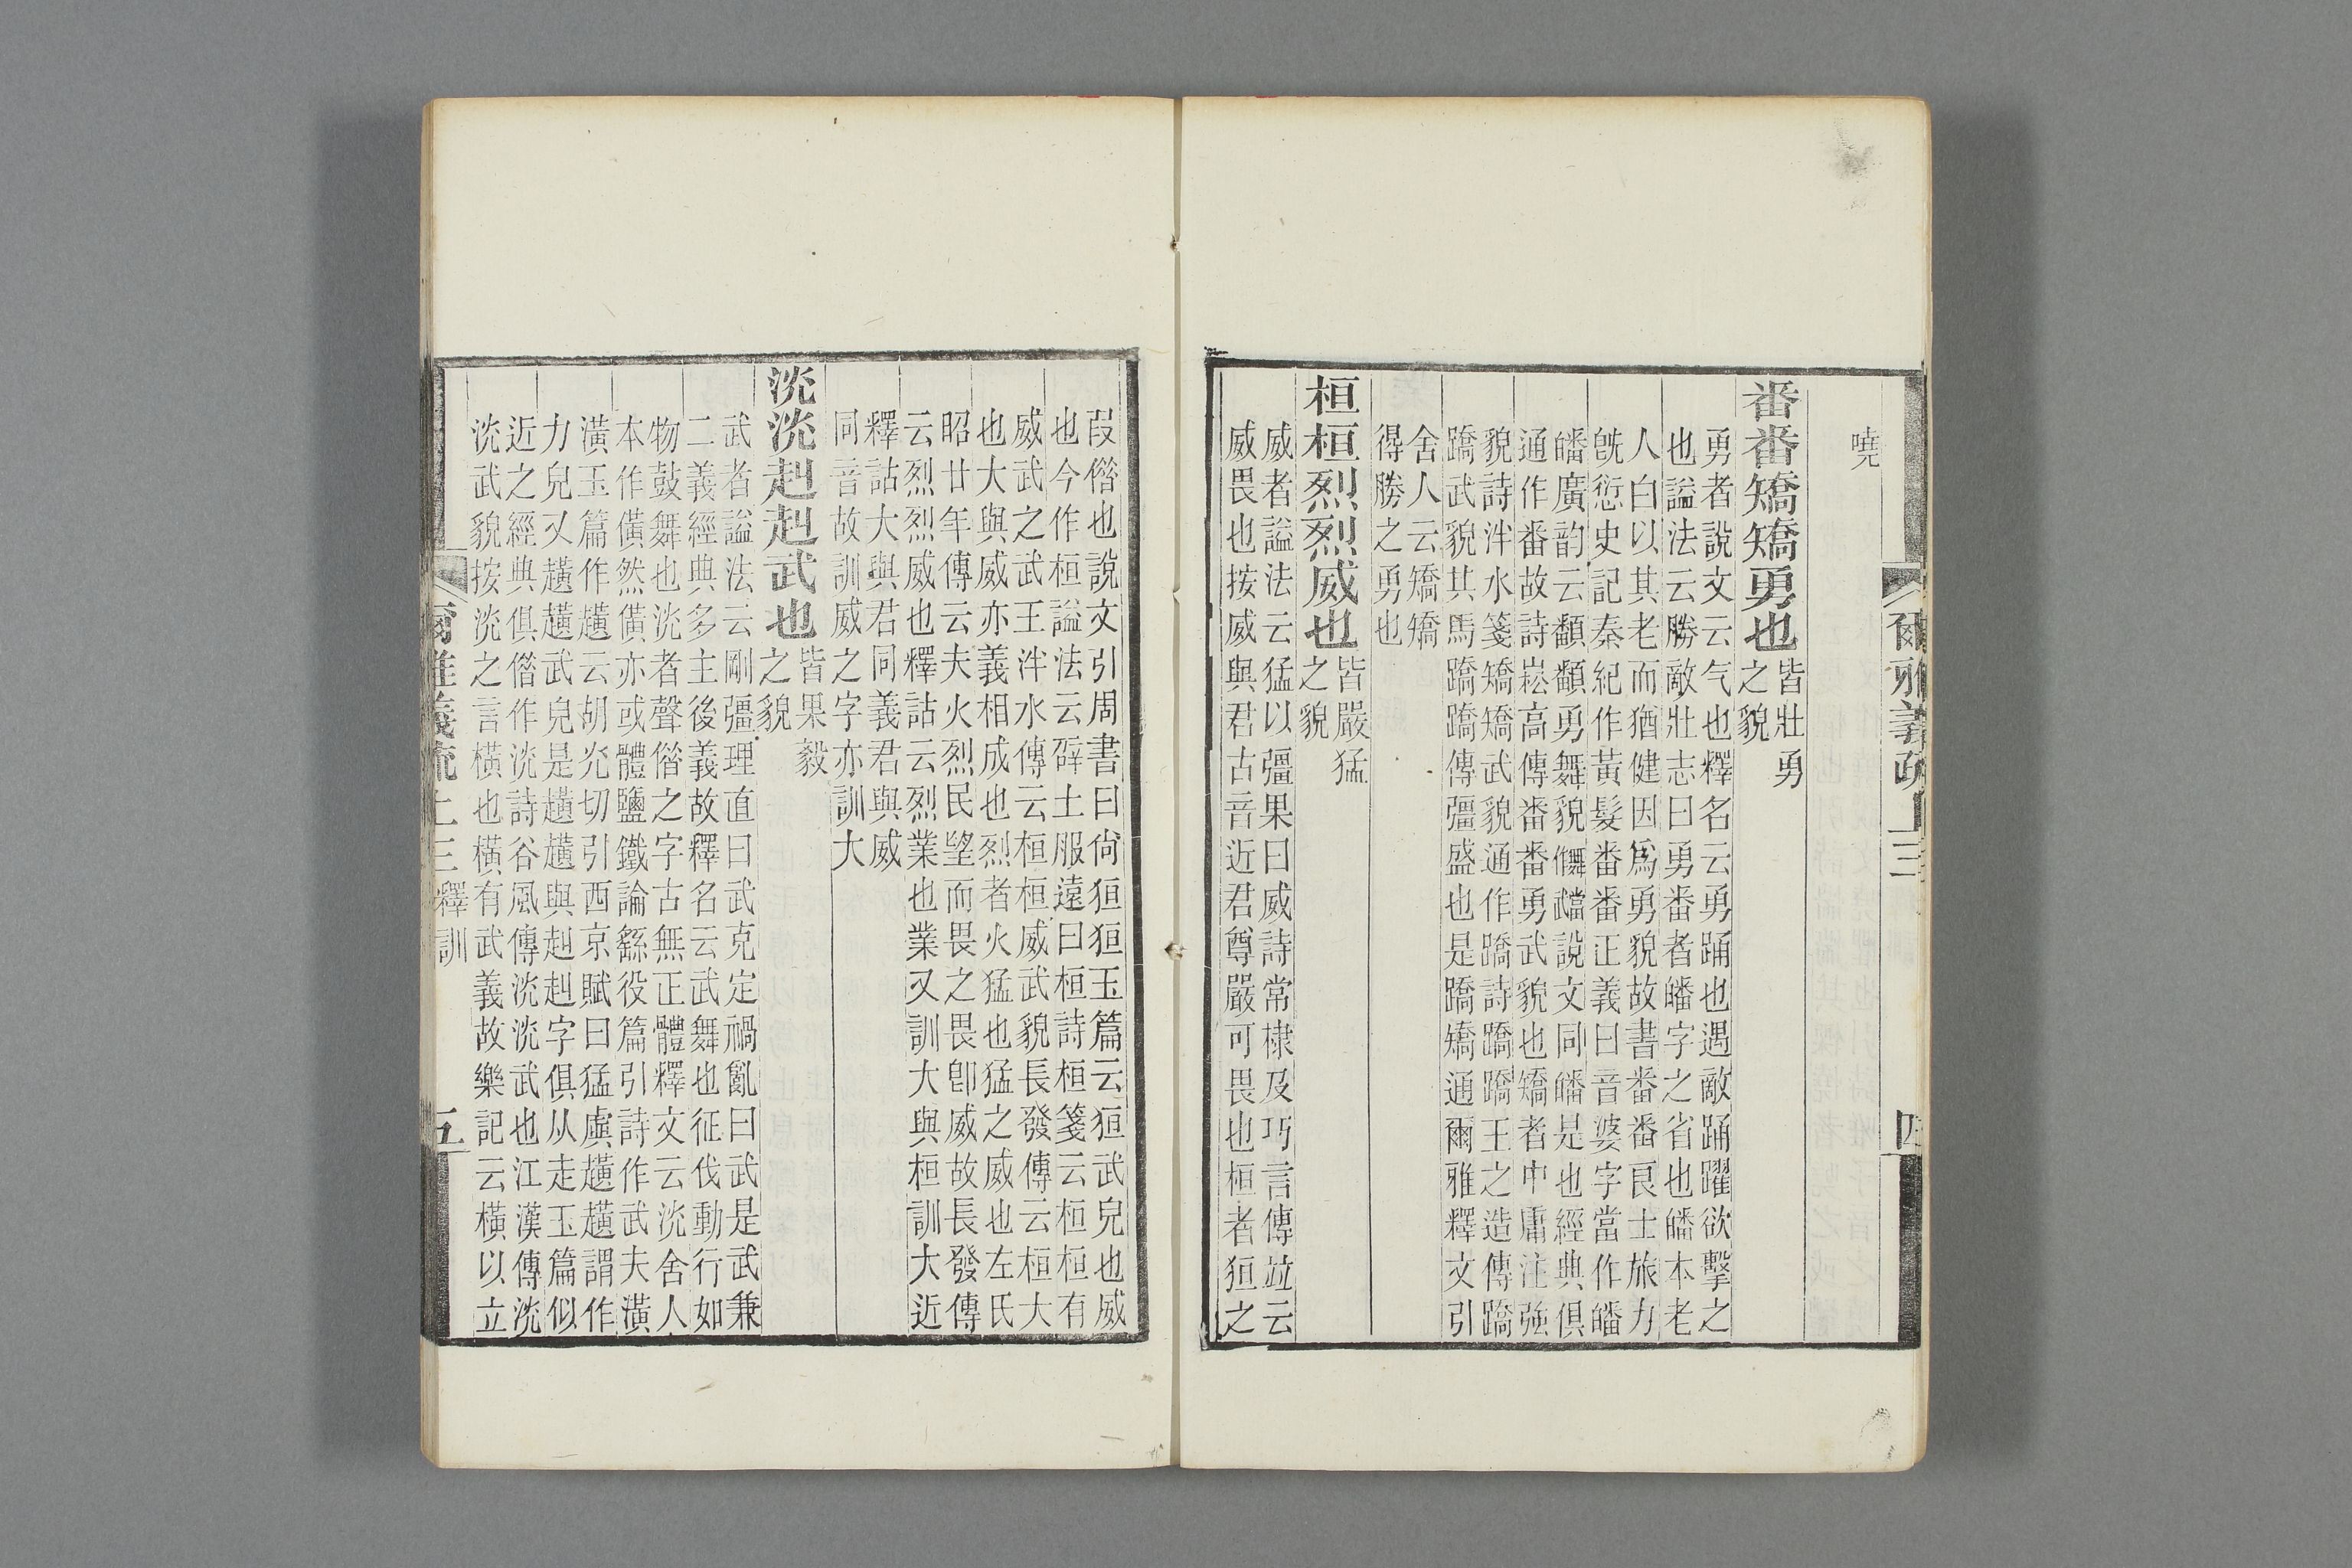 爾雅義疏 上三 四
嘵
番番矯矯勇也
皆壯勇
之貌
勇者說文云气也釋名云勇踊也遇敵踊躍欲擊之
也謚法云勝敵壯志曰勇番者皤字之省也皤本老
人白以其老而猶健因爲勇貌故書番番良士旅力
旣愆史記秦紀作黃髮番番正義曰音婆字當作皤
皤廣韵云䫋䫋勇舞貌說文同皤是也經典俱
通作番故詩崧高傳番番勇武貌也矯者中庸注強
貌詩泮水箋矯矯武貌通作蹻詩蹻蹻王之造傳蹻
蹻武貌其馬蹻蹻傳彊盛也是蹻矯通爾雅釋文引
舍人云矯矯
得勝之勇也
桓桓烈烈威也
皆嚴猛
之貌
威者謚法云猛以彊果曰威詩常棣及巧言傳竝云
威畏也按威與君古音近君尊嚴可畏也桓者狟之
叚偺也說文引周書曰尙狟狟玉篇云狟武皃也威
也今作桓謚法云辟土服遠曰桓詩桓箋云桓桓有
威武之武王泮水傳云桓桓威武貌長發傳云桓大
也大與威亦義相成也烈者火猛也猛之威也左氏
昭廿年傳云夫火烈民望而畏之畏卽威故長發傳
云烈烈威也釋詁云烈業也業又訓大與桓訓大近
釋詁大與君同義君與威
同音故訓威之字亦訓大
洸洸赳赳武也
皆果毅
之貌
武者謚法云剛彊理直曰武克定禍亂曰武是武兼
二義經典多主後義故釋名云武舞也征伐動行如
物鼓舞也洸者聲偺之字古無正體釋文云洸舍人
本作僙然僙亦或體鹽鐵論繇役篇引詩作武夫潢
潢玉篇作趪云胡光切引西京賦曰猛虡趪趪謂作
力皃又趪趪武皃是趪趪與赳赳字俱从走玉篇似
近之經典俱偺作洸詩谷風傳洸洸武也江漢傳洸
洸武貌按洸之言橫也橫有武義故樂記云橫以立
爾雅義疏 上三 釋訓 五